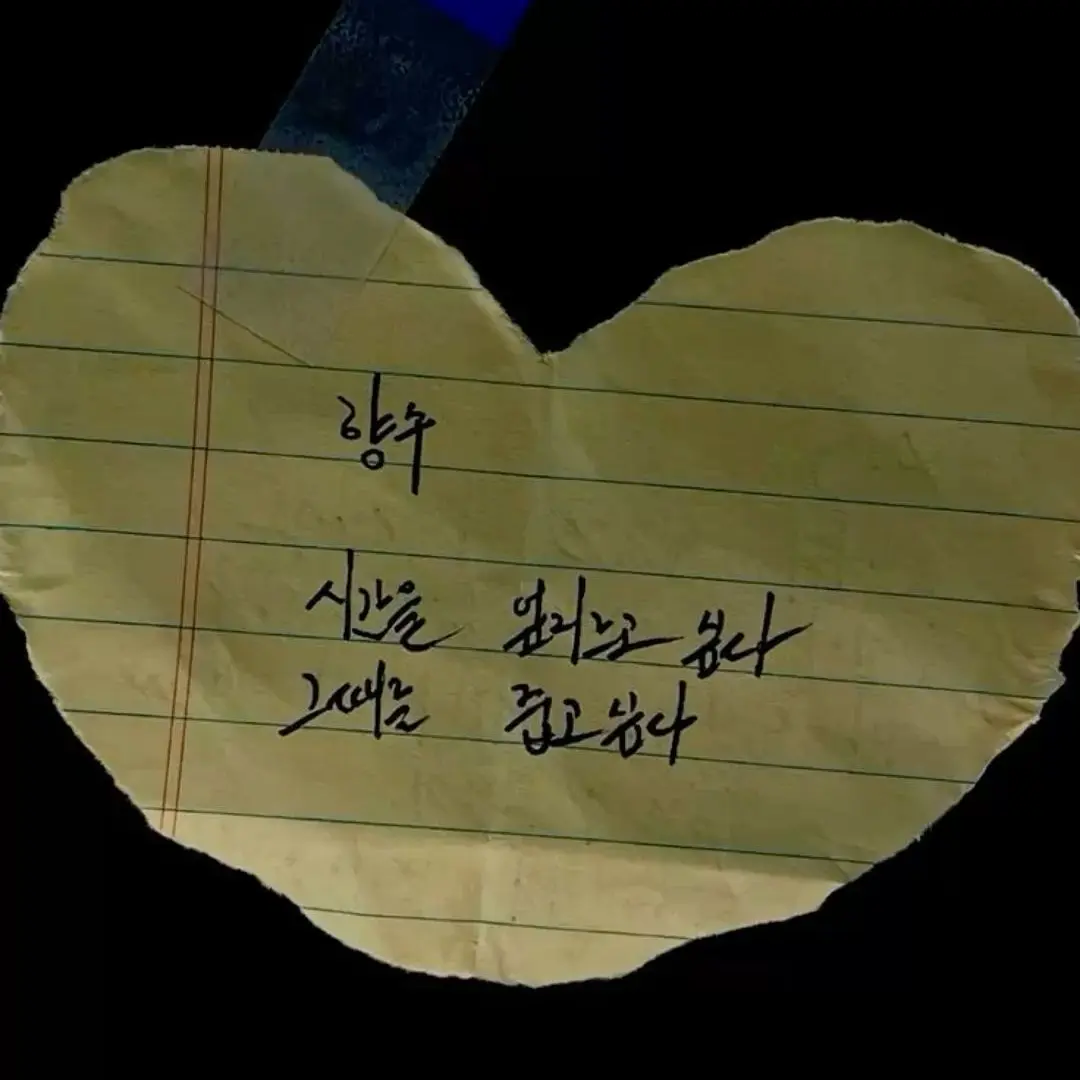 향수
시간을 엎지르고 싶다
그때를 줍고 싶다